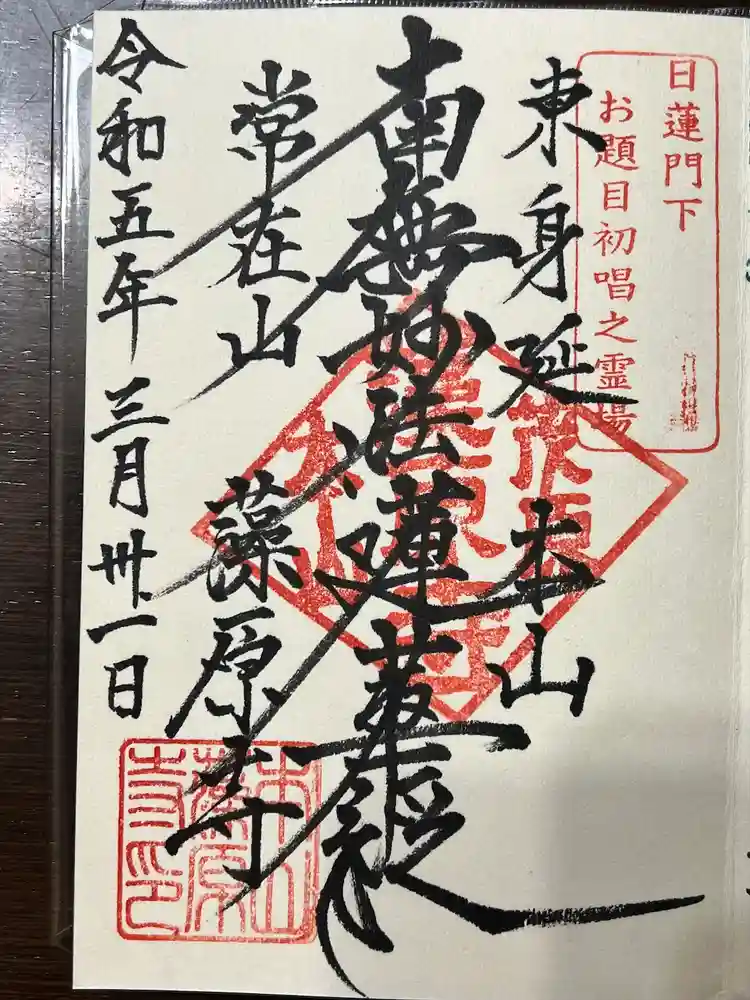 日蓮門下
お題目初唱之霊場
東身延
本山
南無妙法蓮華経
常在山
藻原寺
令和五年三月卅一日
茂原
本山藻原寺印